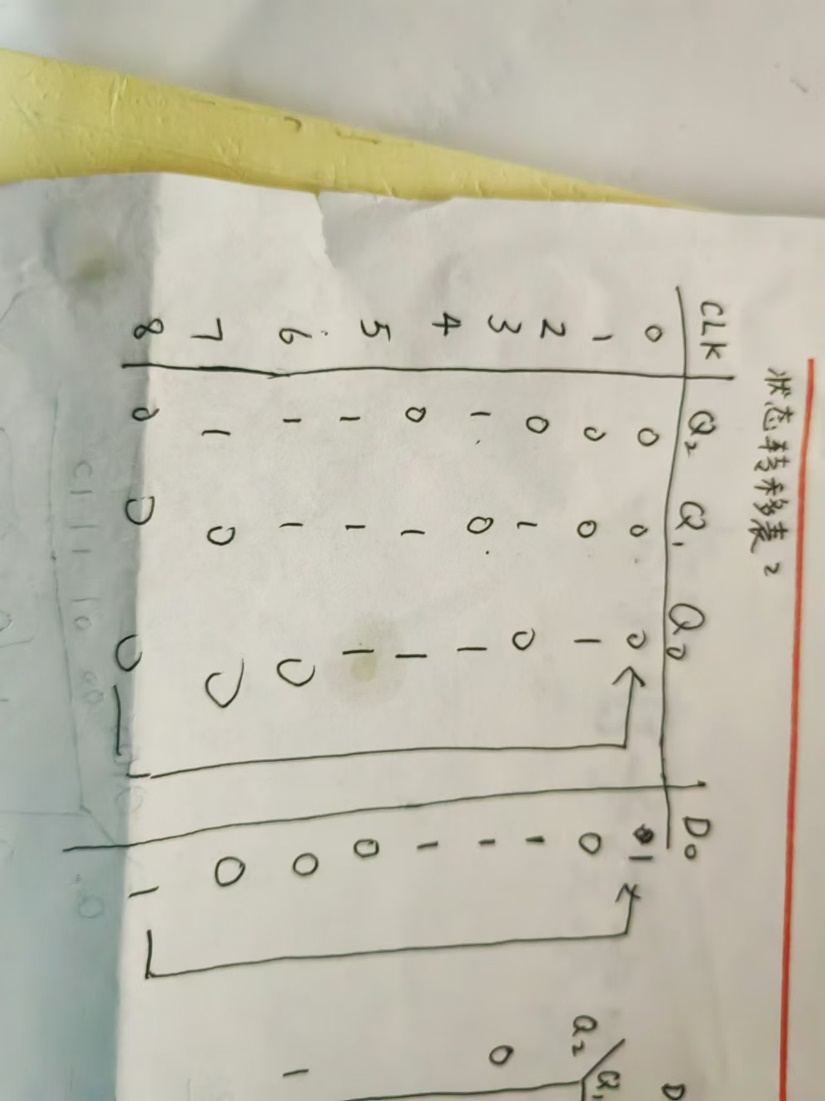 状态转移表2
CLK Q₂ Q₁ Q₀ D₀
0 0 0 0 1
1 0 0 1 0
2 0 1 0 1
3 1 0 1 1
4 0 1 1 1
5 1 1 1 0
6 1 1 0 0
7 1 0 0 0
8 0 0 0 1
D
Q₂ Q₁
0
1